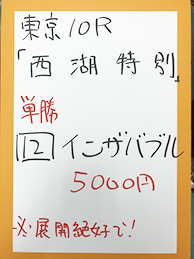 東京10R
「西湖特別」
単勝
12 インザバブル
5000円
※展開絶好で!